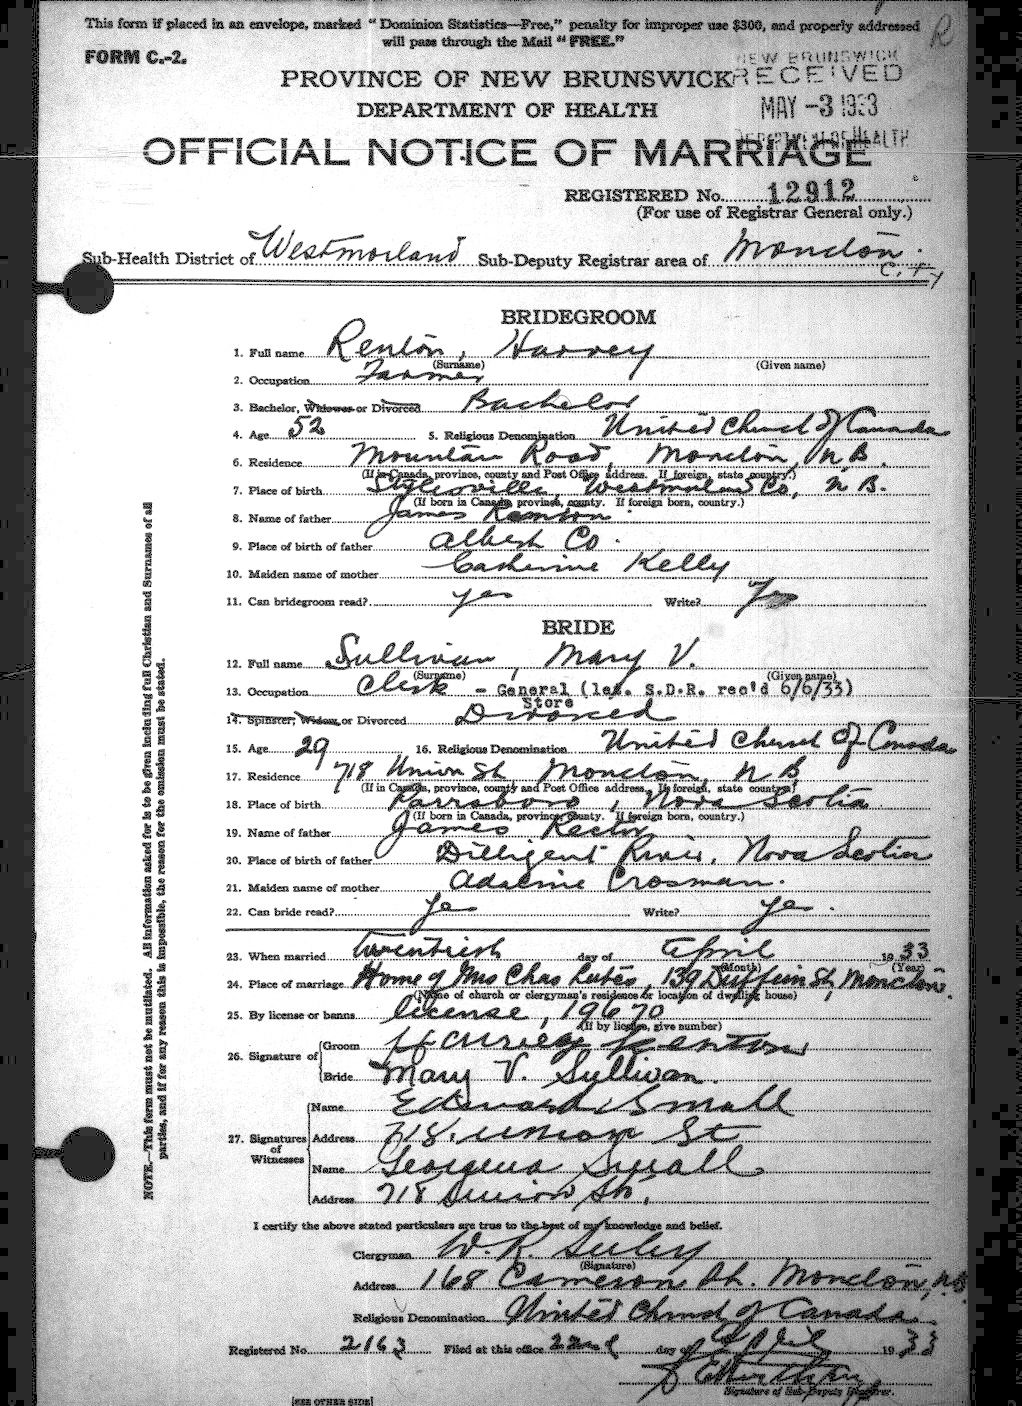 This form if placed in an envelope, marked "Dominion Statistics—Free," penalty for improper use $300, and properly addressed
will pass through the Mail "FREE."
R
FORM C.-2.
NEW BRUNSWICK
RECEIVED
MAY -3 1933
DEPARTMENT OF HEALTH
PROVINCE OF NEW BRUNSWICK
DEPARTMENT OF HEALTH
OFFICIAL NOTICE OF MARRIAGE
REGISTERED No. 12912
(For use of Registrar General only.)
Sub-Health District of Westmorland Sub-Deputy Registrar area of Moncton
City
BRIDEGROOM
1. Full name Renton, Harvey
(Surname) (Given name)
2. Occupation Farmer
3. Bachelor, Widower or Divorced Bachelor
4. Age 52 5. Religious Denomination United Church of Canada
6. Residence Mountain Road, Moncton, N.B.
(If in Canada, province, county and Post Office address. If foreign, state country.)
7. Place of birth Westmorland Co, N.B.
(If born in Canada, province, county. If foreign born, country.)
8. Name of father James Renton
9. Place of birth of father Albert Co.
10. Maiden name of mother Catherine Kelly
11. Can bridegroom read? yes Write? Yes
BRIDE
12. Full name Sullivan, Mary V.
(Surname) (Given name)
13. Occupation Clerk - General (let. S.D.R. rec'd 6/6/33)
Store
14. Spinster, Widow or Divorced Divorced
15. Age 29 16. Religious Denomination United Church of Canada
17. Residence 718 Union St Moncton, N.B.
(If in Canada, province, county and Post Office address. If foreign, state country)
18. Place of birth Parrsboro, Nova Scotia
(If born in Canada, province, county. If foreign born, country.)
19. Name of father James Rector
20. Place of birth of father Dilligent River, Nova Scotia
21. Maiden name of mother Adaline Crosman.
22. Can bride read? Yes Write? Yes.
23. When married twentieth day of April 1933
(Month) (Year)
24. Place of marriage Home of Mrs Chas Lutes, 139 Dufferin St, Moncton.
(Name of church or clergyman's residence or location of dwelling house)
25. By license or banns license, 19670
(If by license, give number)
26. Signature of Groom Harvey Renton
Bride Mary V. Sullivan.
27. Signatures of Witnesses
Name Edward Small
Address 718 Union St
Name Georgena Small
Address 718 Union St.
I certify the above stated particulars are true to the best of my knowledge and belief.
Clergyman W. R. Seeley
(Signature)
Address 168 Cameron St. Moncton, N.B.
Religious Denomination United Church of Canada.
Registered No. 2163 Filed at this office 22nd day of April 1933
Signature of Sub-Deputy Registrar.
[SEE OTHER SIDE]
NOTE.—This form must not be mutilated. All information asked for is to be given including full Christian and Surnames of all
parties, and if for any reason this is impossible, the reason for the omission must be stated.